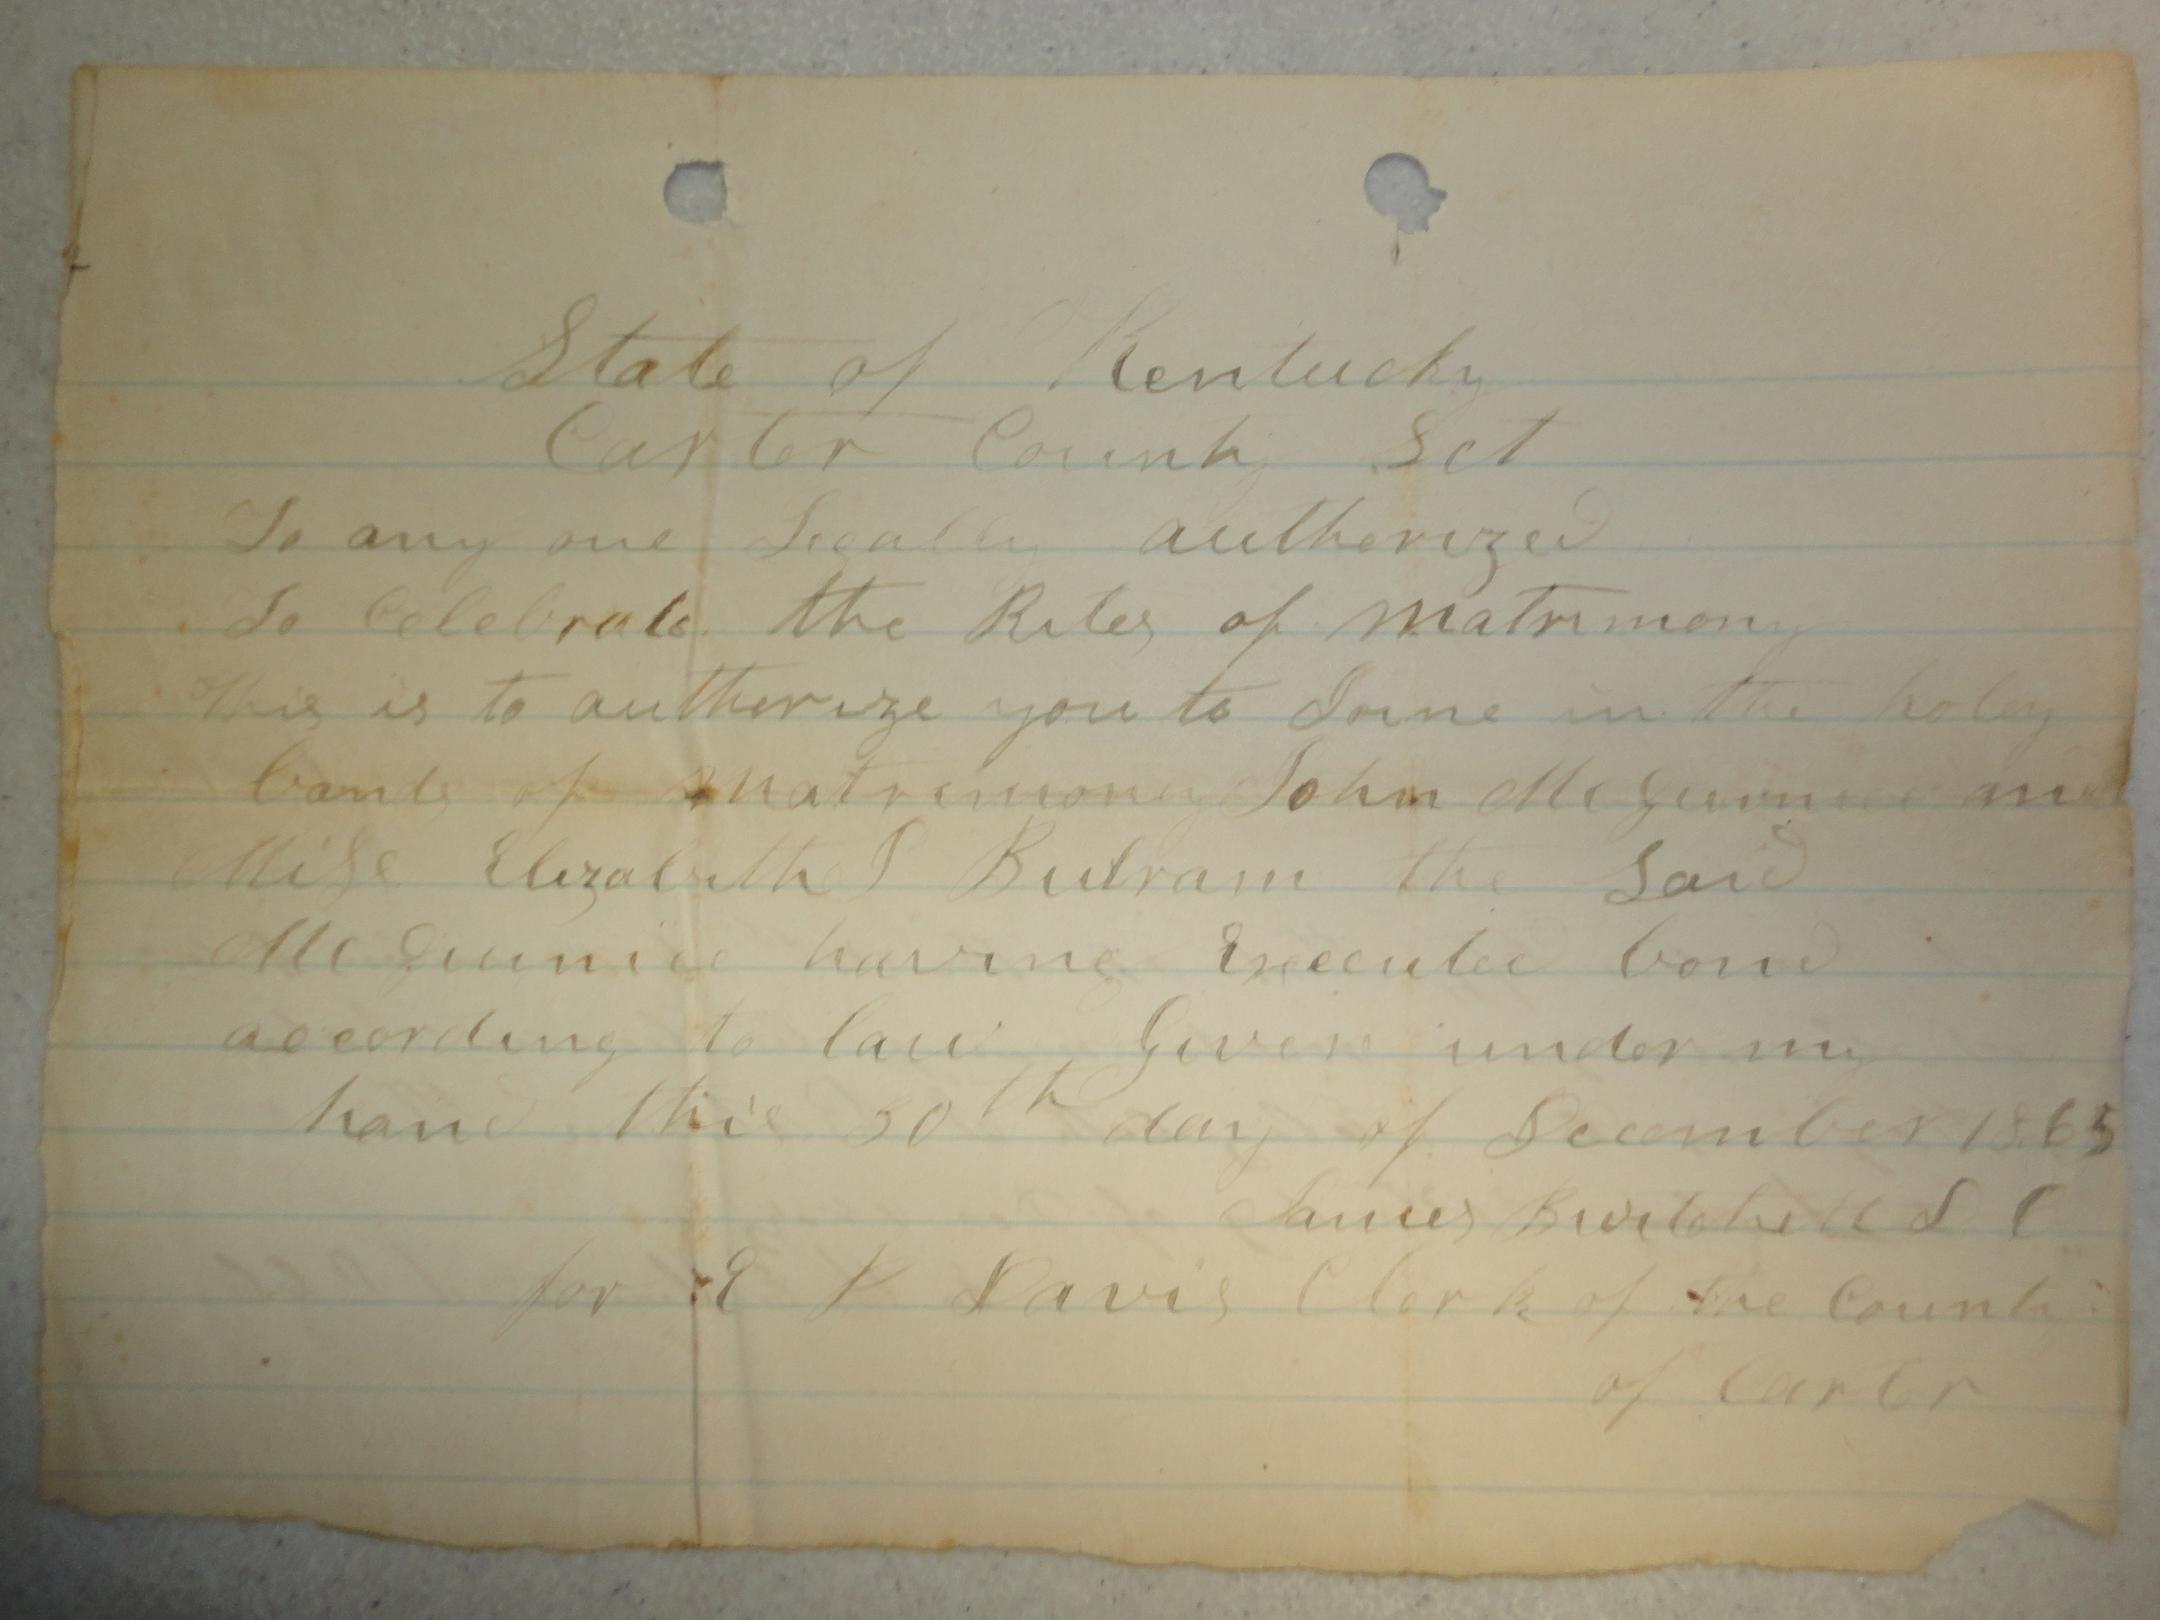 State of Kentucky
Carter County Sct
To any one Legally authorized
To Celebrate the Rites of Matrimony
This is to authorize you to Joine in the holey
bands of Matrimony John McGuinnie and
Miss Elizabeth J Butram the Said
McGuinnie having Executed bond
according to law, Given under my
hand this 30th day of December 1865
James D C
for E Davis Clerk of the County
of Carter